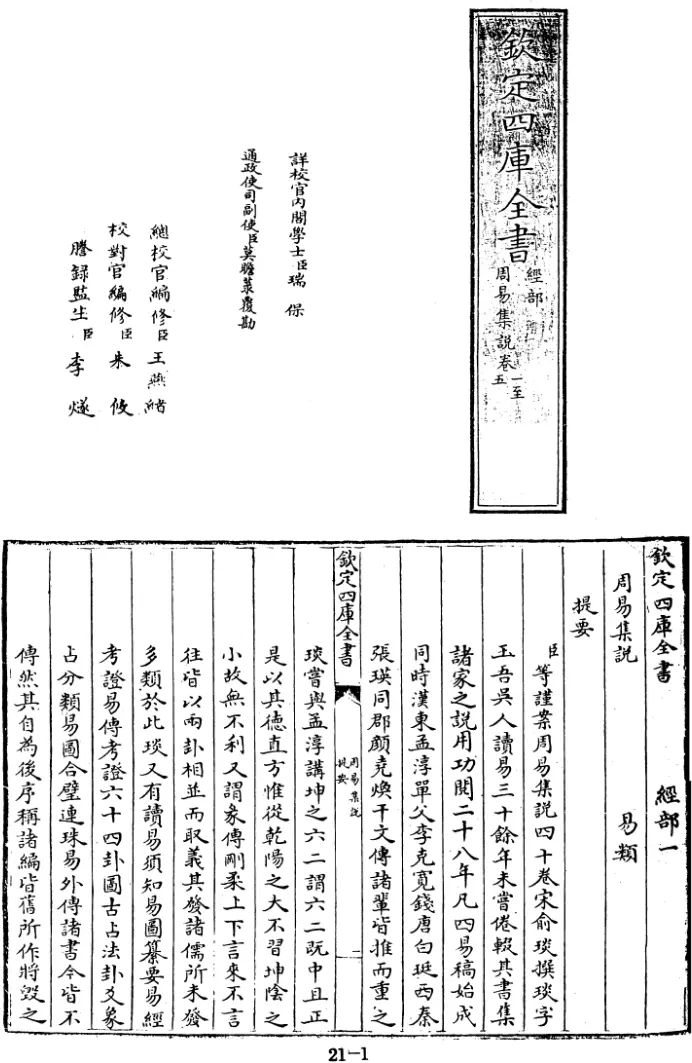 欽定四庫全書
經部
周易集說卷一至五
詳校官內閣學士臣瑞保
通政使司副使臣莫瞻菉覆勘
總校官編修臣王燕緒
校對官編修臣朱攸
謄錄監生臣李燧
欽定四庫全書 經部一
周易集說 易類
提要
臣等謹案周易集說四十卷宋俞琰撰琰字
玉吾吳人讀易三十餘年未嘗倦輟其書集
諸家之說用功閱二十八年凡四易稿始成
同時漢東孟淳單父李克寬錢唐白珽西秦
張瑛同郡顏堯煥干文傳諸輩皆推而重之
欽定四庫全書
周易集說
提要
二
琰嘗與孟淳講坤之六二謂六二既中且正
是以其德直方惟從乾陽之大不習坤陰之
小故無不利又謂彖傳剛柔上下言來不言
往皆以兩卦相並而取義其發諸儒所未發
多類於此琰又有讀易須知易圖纂要易經
考證易傳考證六十四卦圖古占法卦爻象
占分類易圖合璧連珠易外傳諸書今皆不
傳然其自為後序稱諸編皆舊所作將毀之
21-1